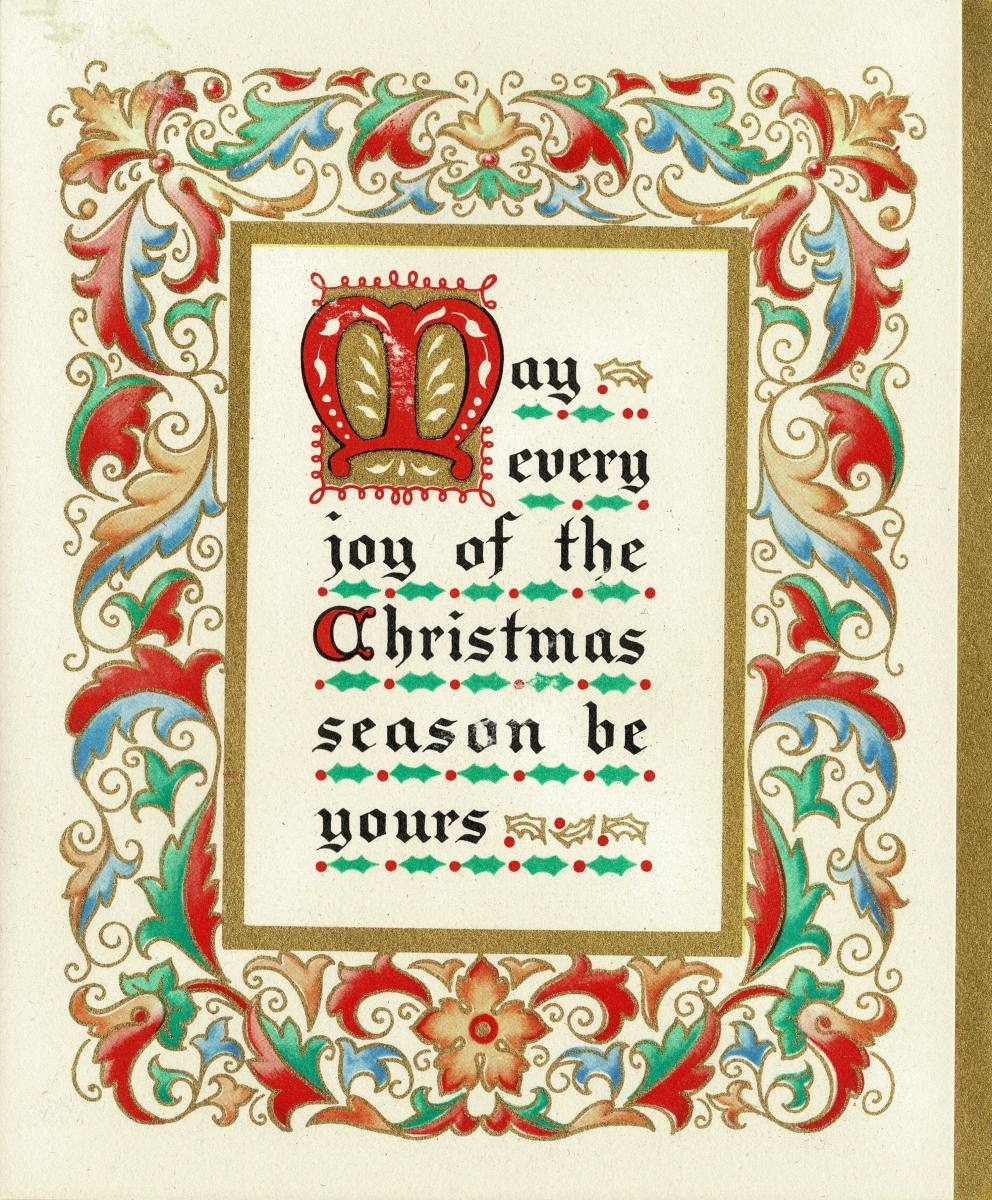 May
every
joy of the
Christmas
season be
yours